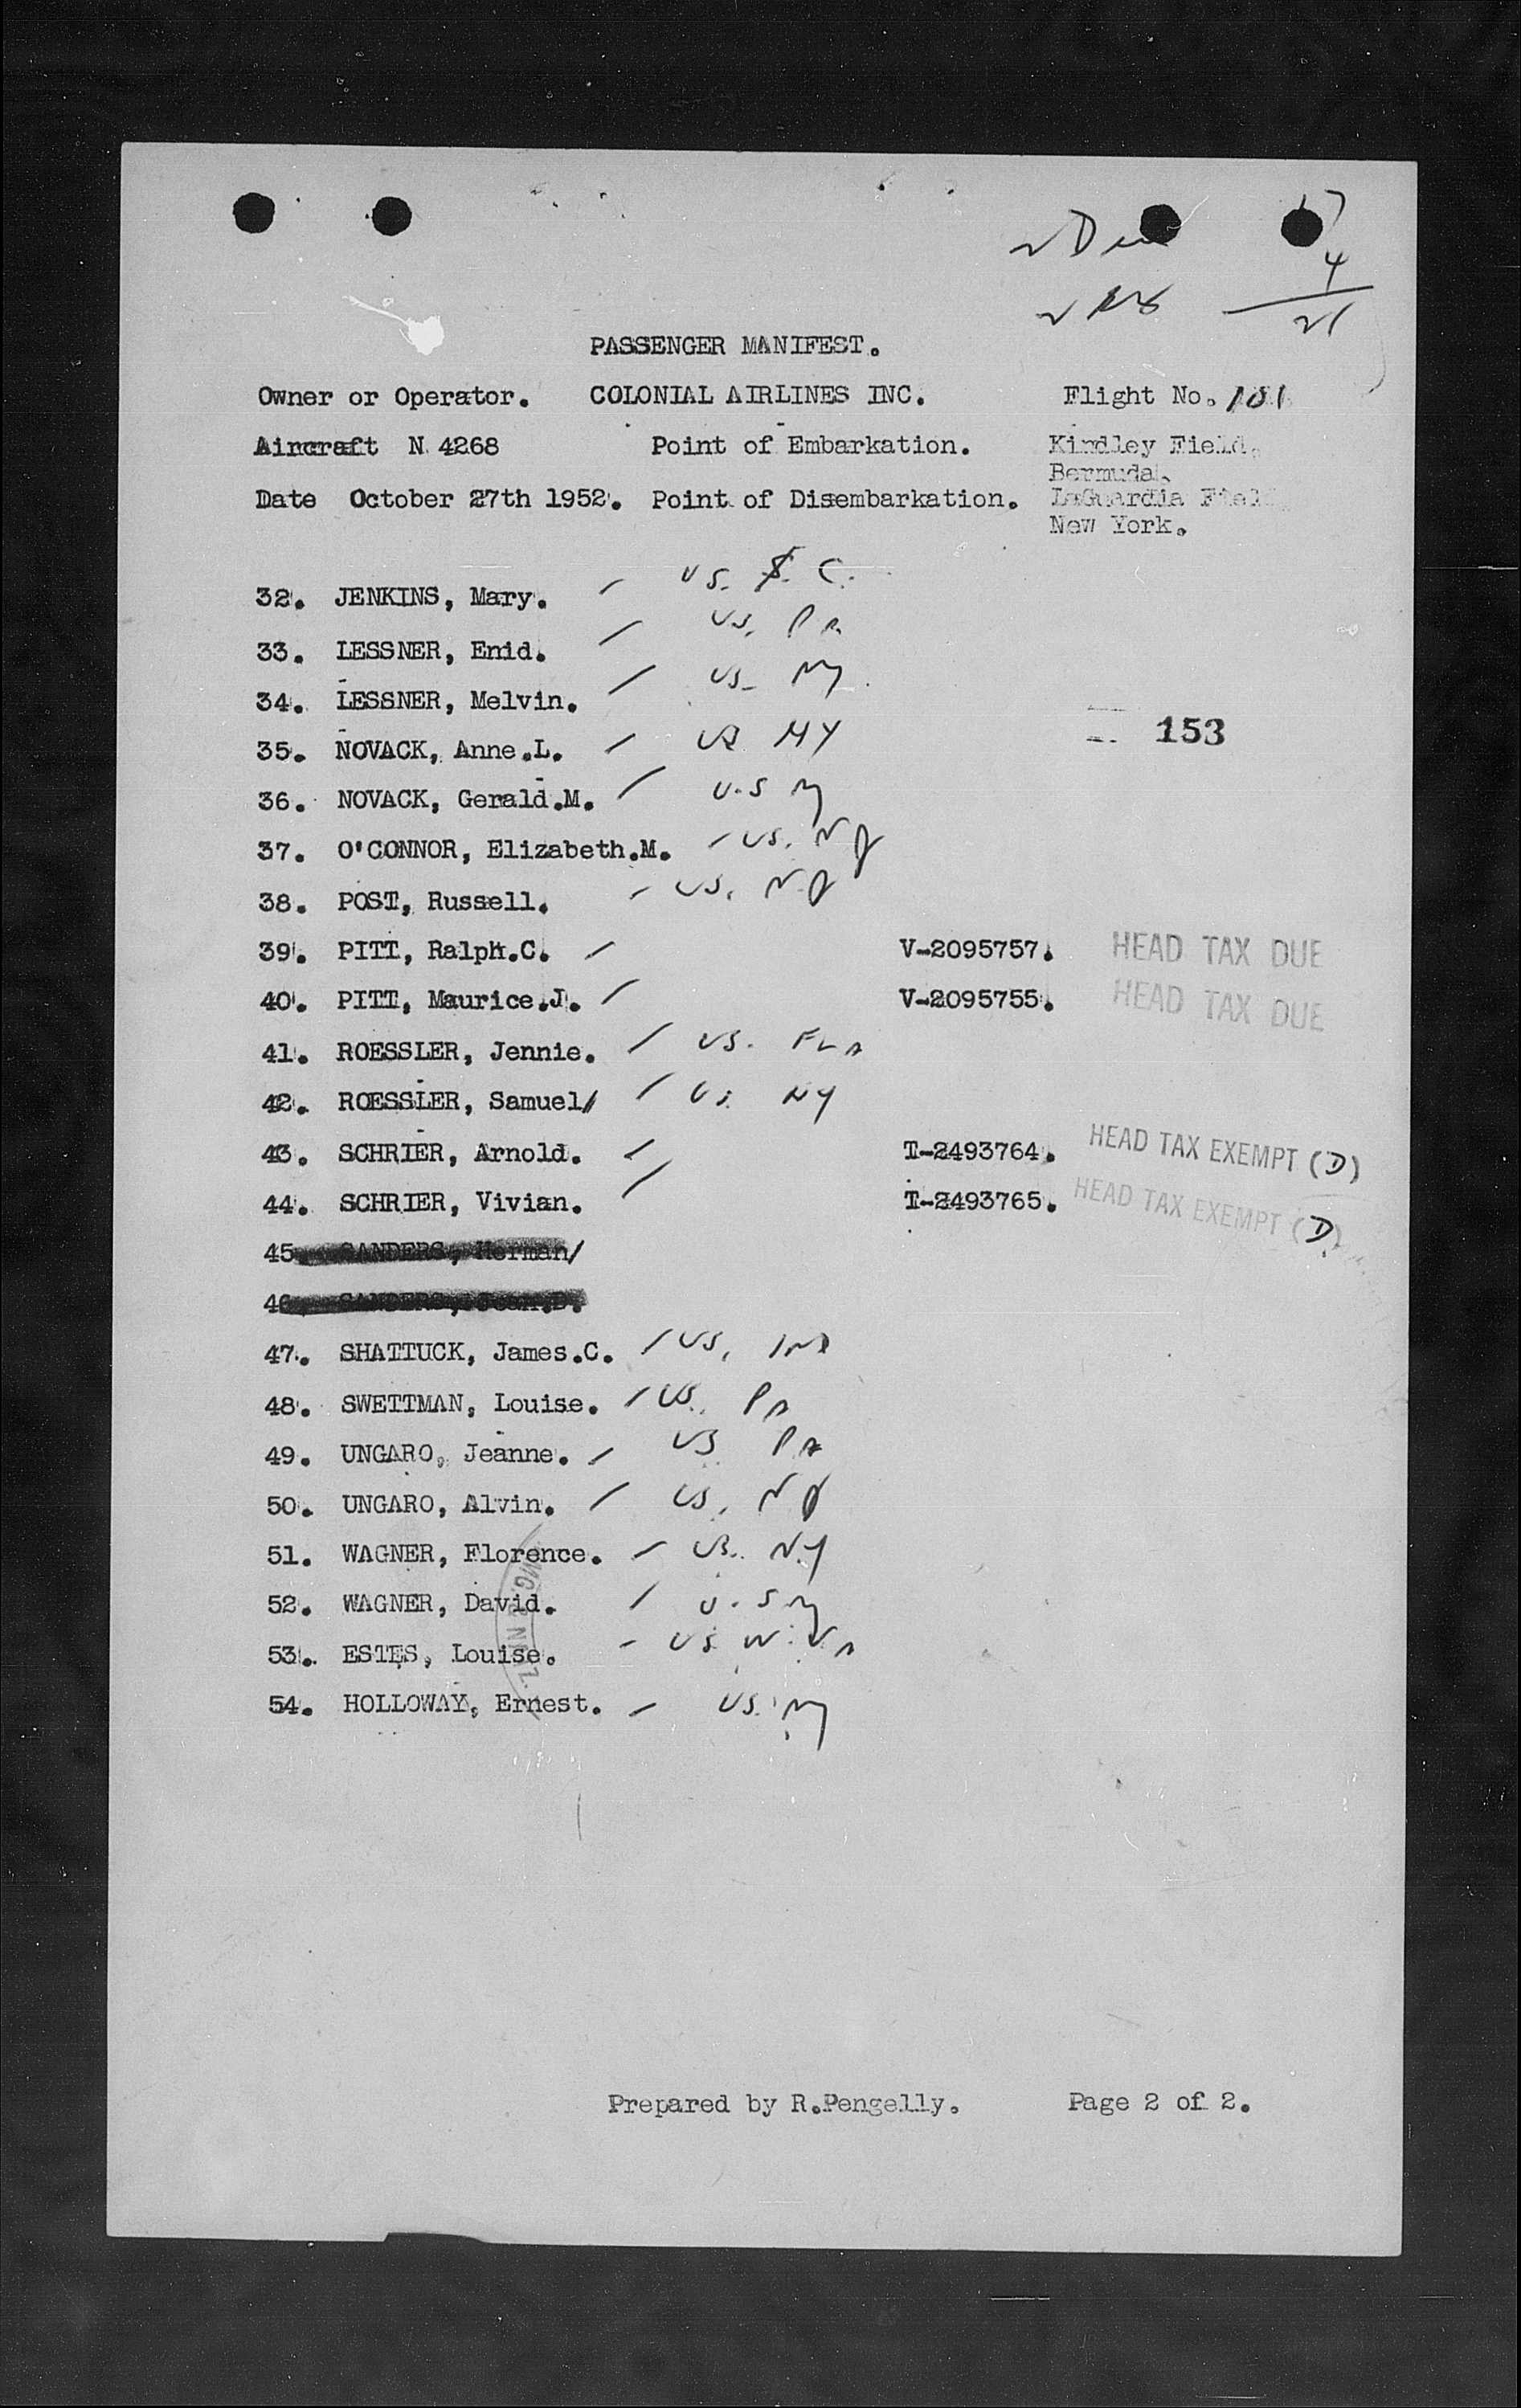 17
2 Due
4
21
PASSENGER MANIFEST.
Owner or Operator. COLONIAL AIRLINES INC. Flight No. 101
Aircraft N 4268 Point of Embarkation. Kindley Field,
Bermuda.
Date October 27th 1952. Point of Disembarkation. LaGuardia Field
New York.
32. JENKINS, Mary. / US. S. C.
33. LESSNER, Enid. / US. Pa
34. LESSNER, Melvin. / US- Ny
153
35. NOVACK, Anne.L. / US NY
36. NOVACK, Gerald.M. / U.S Ny
37. O'CONNOR, Elizabeth.M. / US. NJ
38. POST, Russell. - US. NJ
39. PITT, Ralph.C. / V-2095757. HEAD TAX DUE
40. PITT, Maurice.J. / V-2095755. HEAD TAX DUE
41. ROESSLER, Jennie. / US. FLA
42. ROESSLER, Samuel/ / US. NY
43. SCHRIER, Arnold. / T-2493764. HEAD TAX EXEMPT (D)
44. SCHRIER, Vivian. / T-2493765. HEAD TAX EXEMPT (D)
45. SANDERS, Herman/
46. SANDERS, Jean.D.
47. SHATTUCK, James.C. / US, IND
48. SWETTMAN, Louise. / US. PA
49. UNGARO, Jeanne. / US PA
50. UNGARO, Alvin. / US, NJ
51. WAGNER, Florence. / US. N.Y
52. WAGNER, David. / U.S Ny
53. ESTES, Louise. - US W.VA
54. HOLLOWAY, Ernest. - US. Ny
Prepared by R.Pengelly. Page 2 of 2.